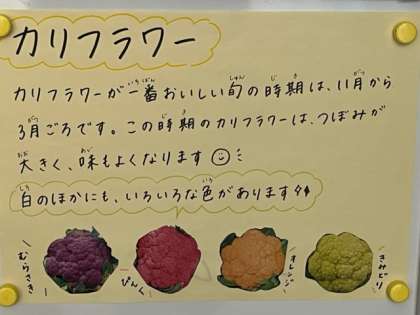 カリフラワー
カリフラワーが一番おいしい旬の時期は、11月から
3月ごろです。この時期のカリフラワーは、つぼみが
大きく、味もよくなります
白のほかにも、いろいろな色があります
むらさき
ぴんく
オレンジ
きみどり